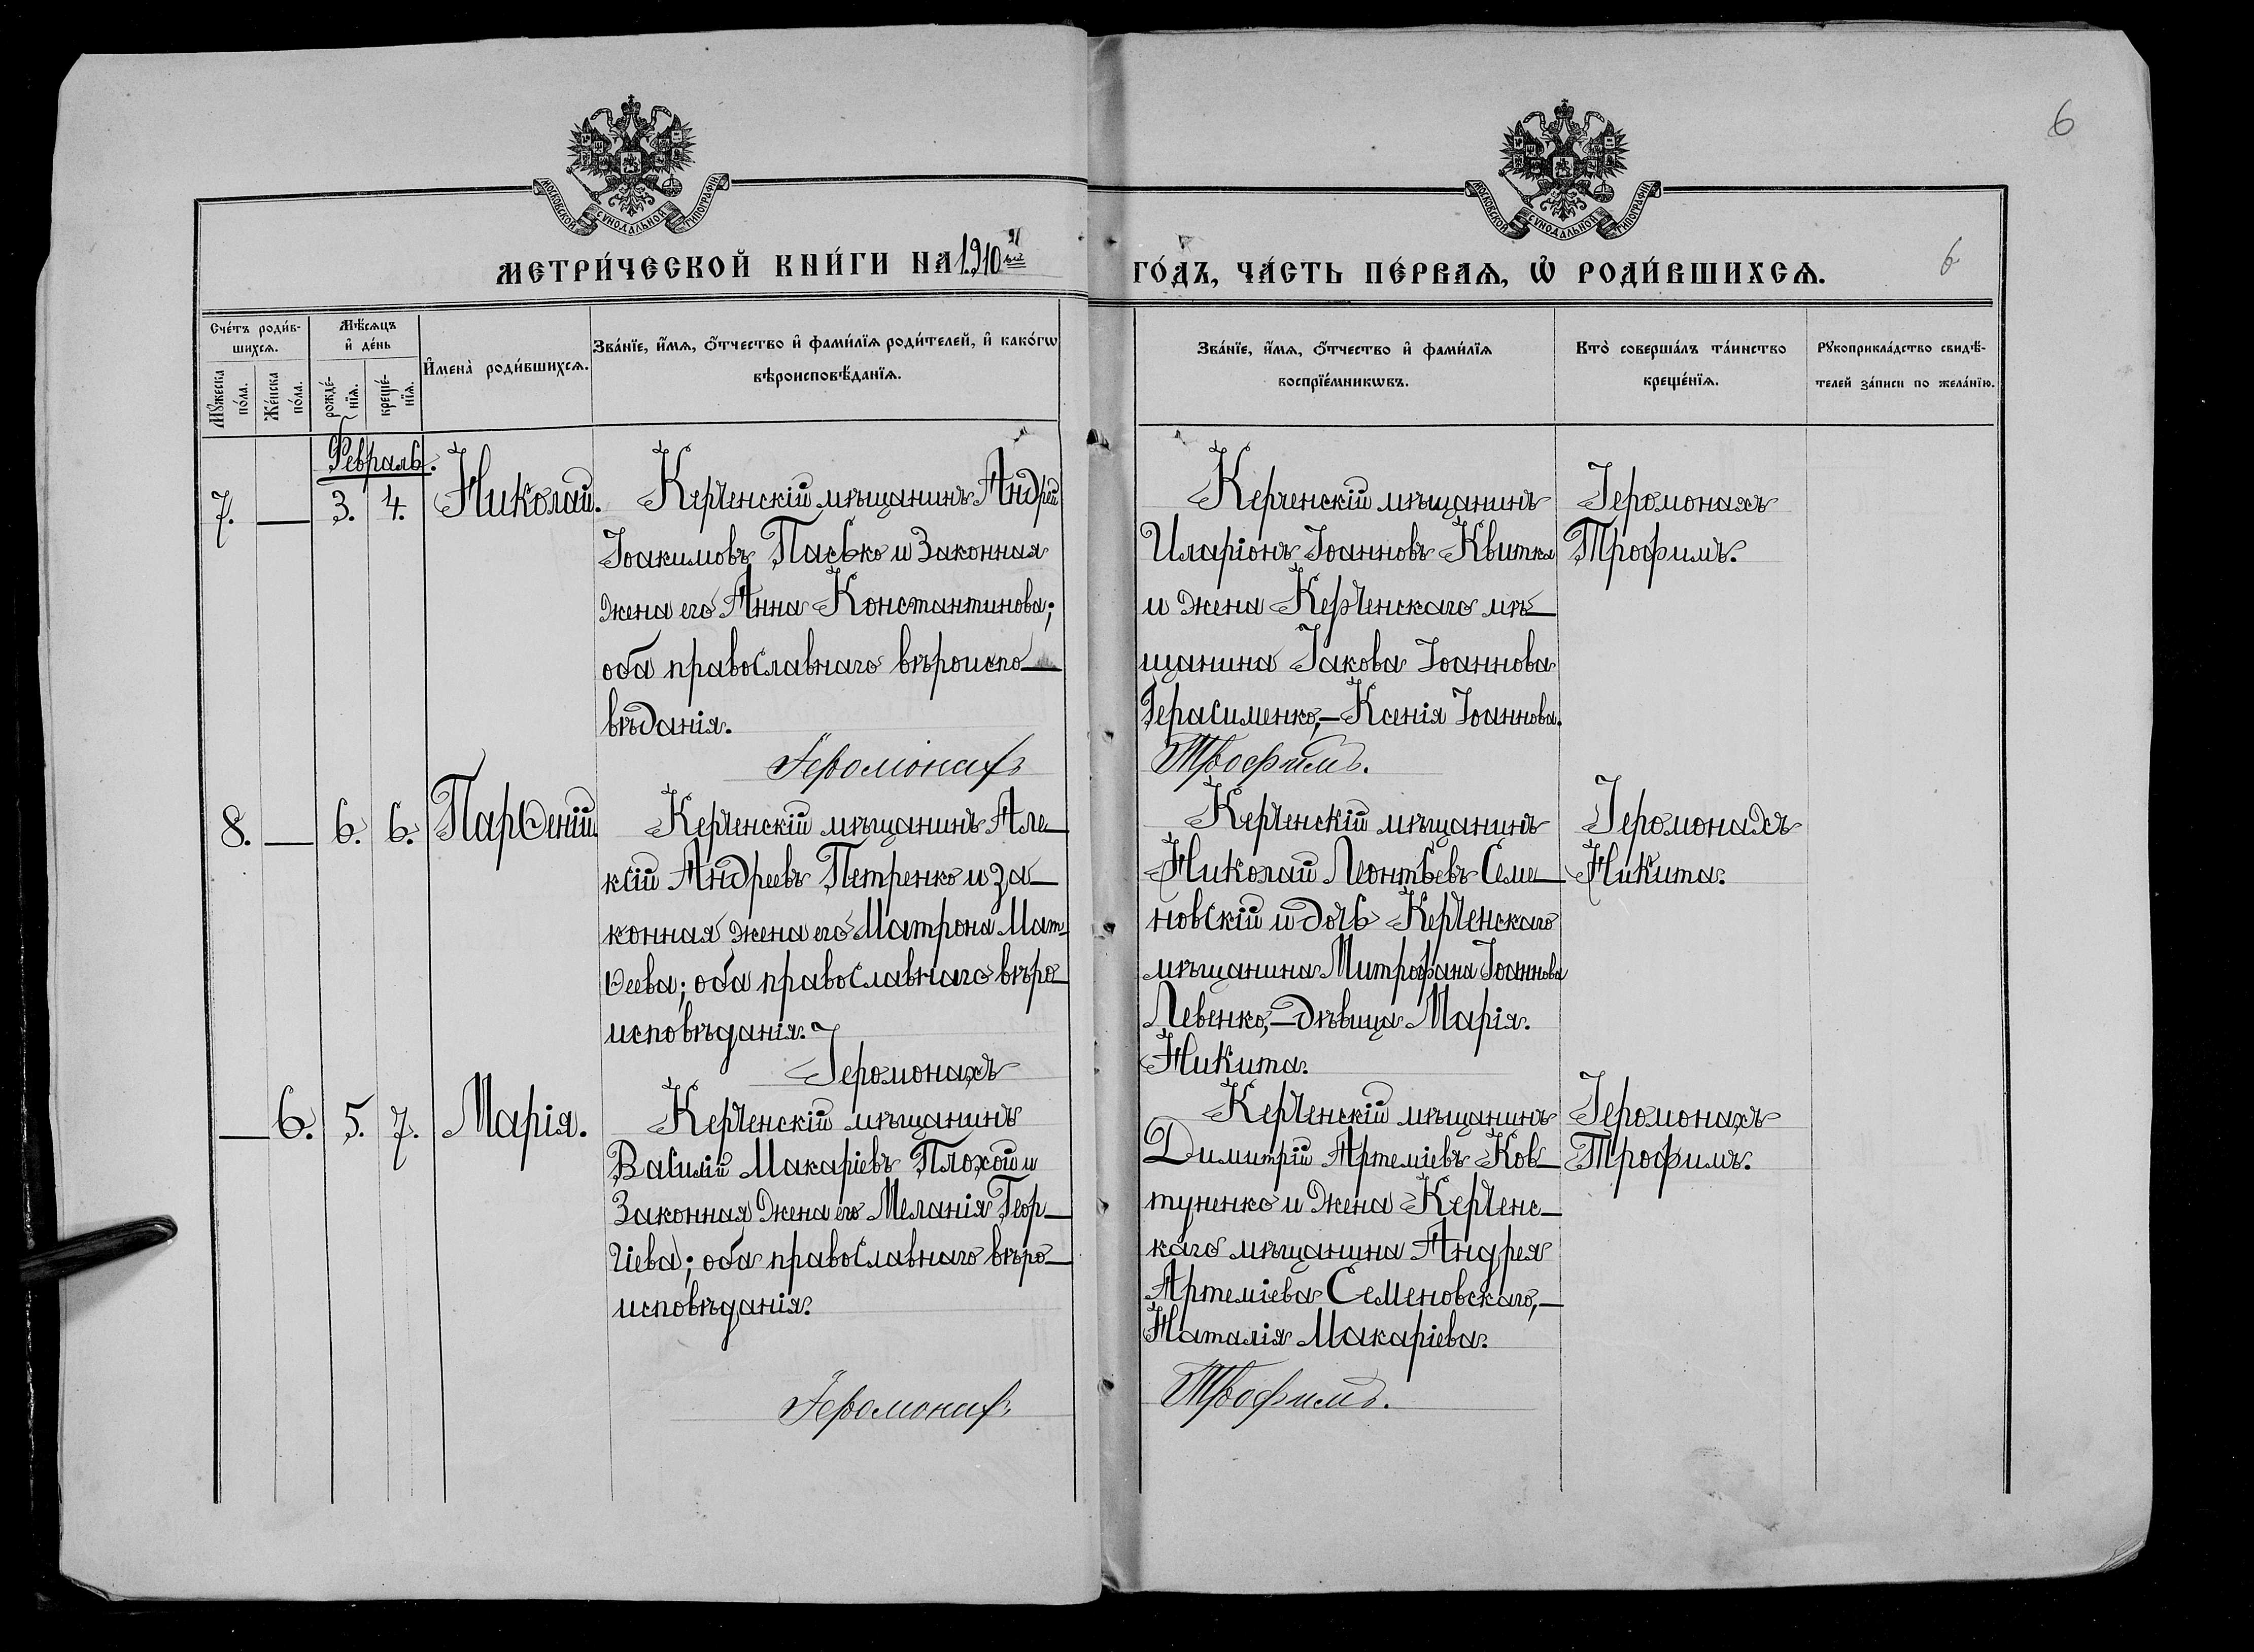 6
МОСКОВСКОЙ СУНОДАЛЬНОЙ ТИПОГРАФІИ
МОСКОВСКОЙ СУНОДАЛЬНОЙ ТИПОГРАФІИ
МЕТРИ́ЧЕСКОЙ КНИ́ГИ НА 1910ый
ГО́ДЪ, ЧА́СТЬ ПЕ́РВАѦ, Ѡ҆ РОДИ́ВШИХСѦ.
6
Сче́тъ роди́в-
шихсѧ.
Мꙋ́жеска
по́ла.
Же́нска
по́ла.
Мѣ́сѧцъ
и҆ де́нь
рожде́-
нїѧ.
креще́-
нїѧ.
И҆мена̀ роди́вшихсѧ.
Зва́нїе, и҆́мѧ, ѻ҆́тчество и҆ фами́лїѧ роди́телей, и҆ како́гѡ
вѣроисповѣ́данїѧ.
Зва́нїе, и҆́мѧ, ѻ҆́тчество и҆ фами́лїѧ
воспрїе́мникѡвъ.
Кто̀ соверша́лъ та́инство
креще́нїѧ.
Рꙋкоприкла́дство свидѣ́-
телей за́писи по жела́нїю.
Февраль.
7. — 3. 4. Николай.
Керченскій мѣщанинъ Андрей
Іоакимовъ Пасько и Законная
жена его Анна Константинова;
оба православнаго вѣроиспо—
вѣданія.
Іеромонахъ
Керченскій мѣщанинъ
Иларіонъ Іоанновъ Квитка
и жена Керченскаго мѣ—
щанина Іакова Іоаннова
Герасименко,—Ксенія Іоаннова.
Трофимъ.
Іеромонахъ
Трофимъ.
8. — 6. 6. Парѳеній.
Керченскій мѣщанинъ Але—
ксій Андреевъ Петренко и за—
конная жена его Матрона Мат—
ѳеева; оба православнаго вѣро—
исповѣданія.
Іеромонахъ
Керченскій мѣщанинъ
Николай Леонтьевъ Семе—
новскій и дочь Керченскаго
мѣщанина Митрофана Іоаннова
Левенко,—дѣвица Марія.
Никита.
Іеромонахъ
Никита.
— 6. 5. 7. Марія.
Керченскій мѣщанинъ
Василій Макаріевъ Плохой и
Законная жена его Меланія Геор—
гіева; оба православнаго вѣро—
исповѣданія.
Іеромонахъ
Керченскій мѣщанинъ
Димитрій Артеміевъ Ков—
туненко и жена Керченс—
каго мѣщанина Андрея
Артеміева Семеновскаго,—
Наталія Макаріева.
Трофимъ.
Іеромонахъ
Трофимъ.